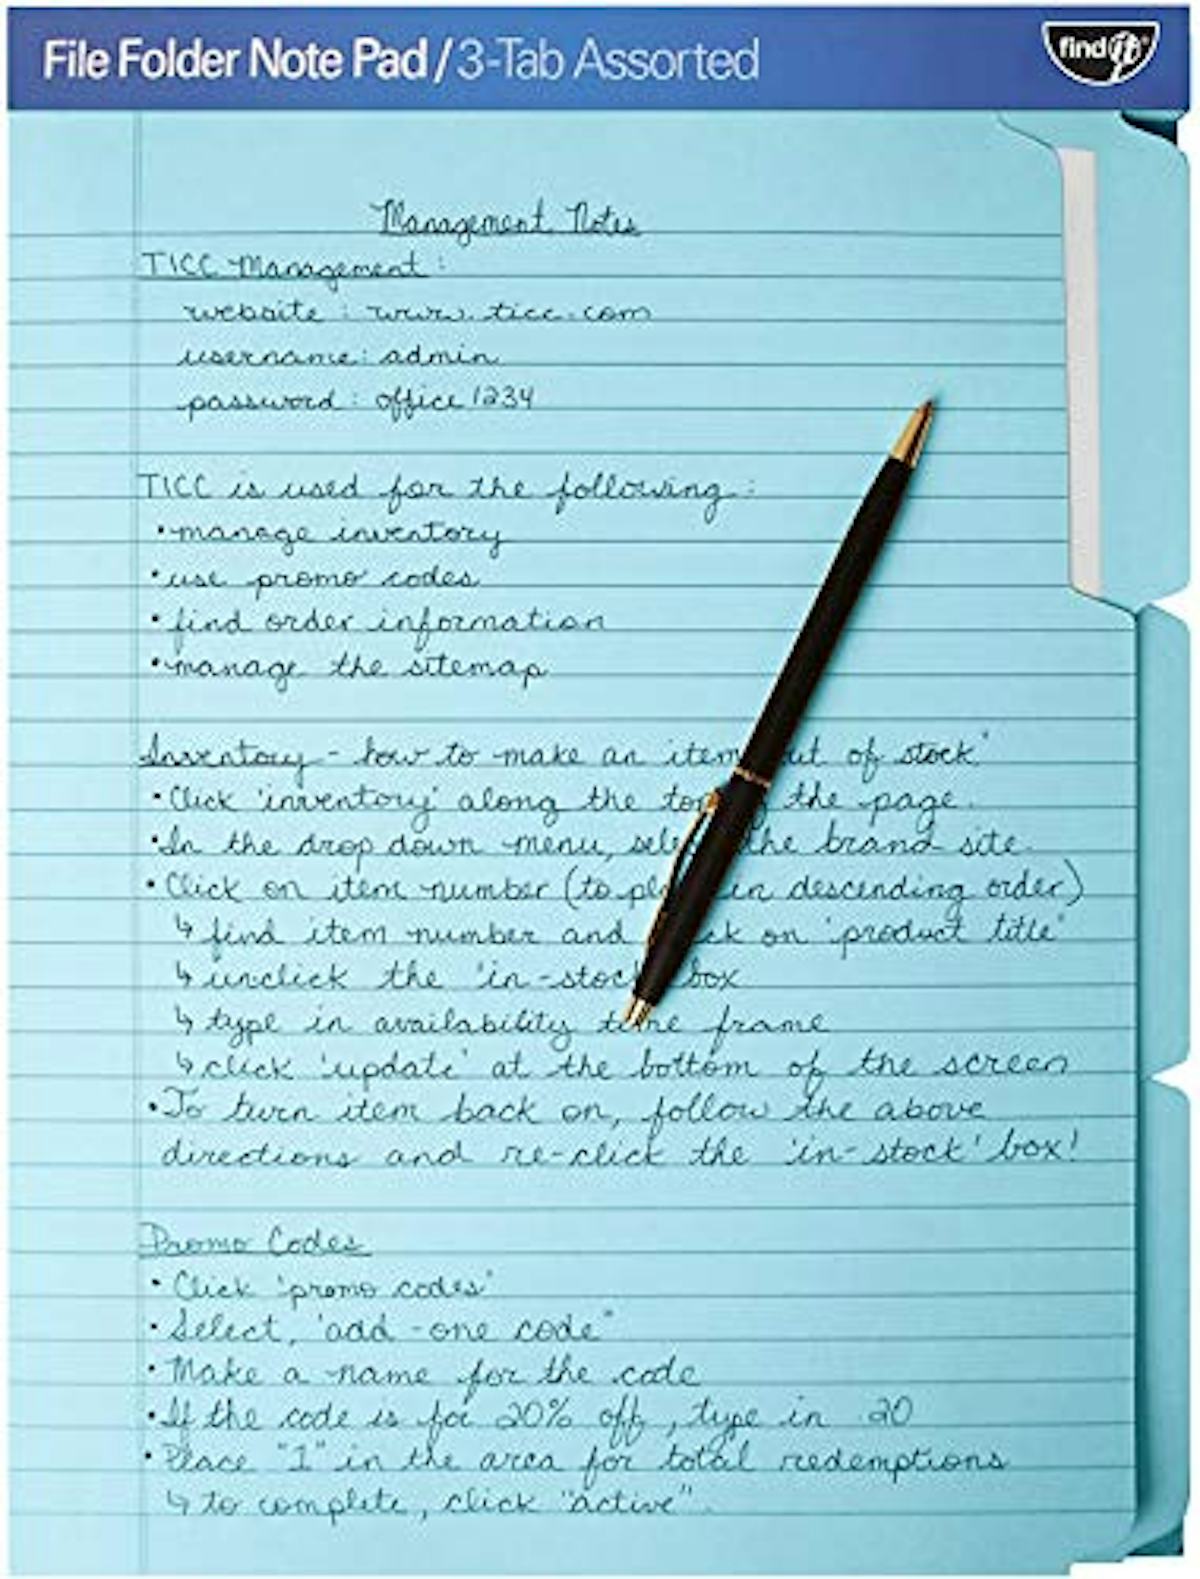 File Folder Note Pad / 3-Tab Assorted
find it
Management Notes
TICC Management:
website: www.ticc.com
username: admin
password: office1234
TICC is used for the following:
•manage inventory
•use promo codes
•find order information
•manage the sitemap
Inventory - how to make an item ut of stock'
•Click 'inventory' along the to the page.
•In the drop down menu, sele the brand site.
•Click on item number (to pl in descending order)
↳ find item number and ck on 'product title'
↳ unclick the 'in-stock box
↳ type in availability time frame
↳ click 'update' at the bottom of the screen
•To turn item back on, follow the above
directions and re-click the 'in-stock' box!
Promo Codes
• Click 'promo codes'
•Select, 'add-one code"
•Make a name for the code
•If the code is for 20% off, type in .20
•Place "1" in the area for total redemptions
↳ to complete, click "active".